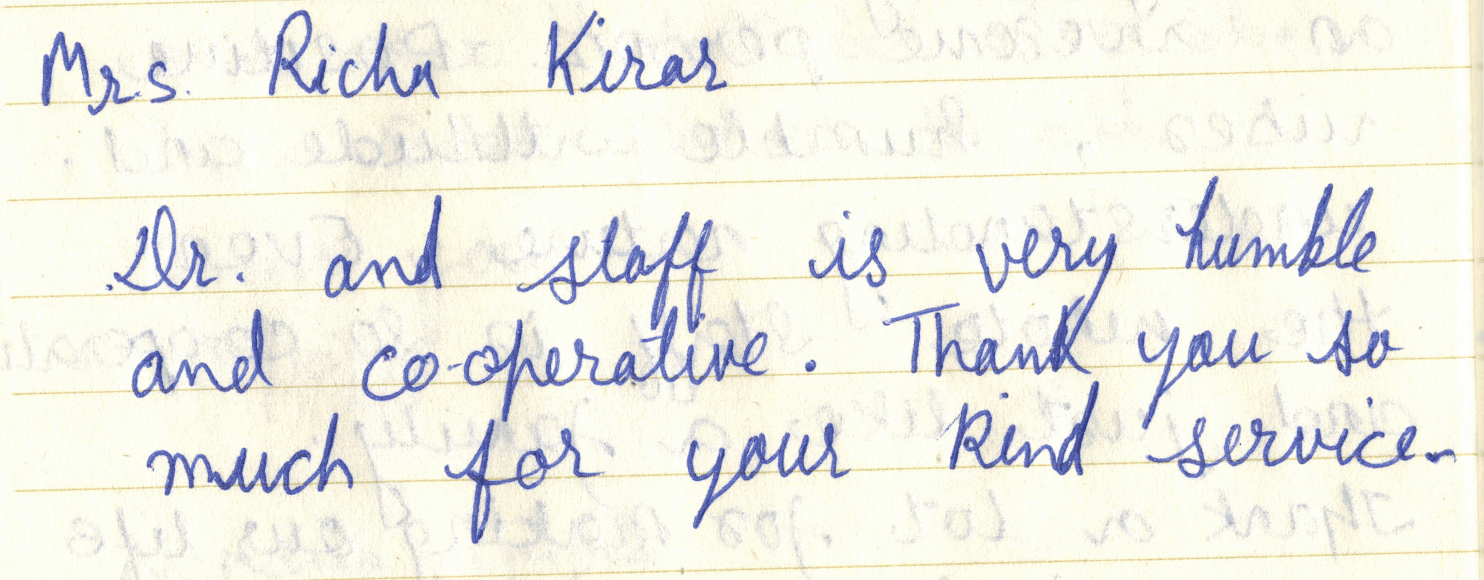 Mrs. Richa Kirar
Dr. and staff is very humble
and co-operative. Thank you so
much for your kind service.